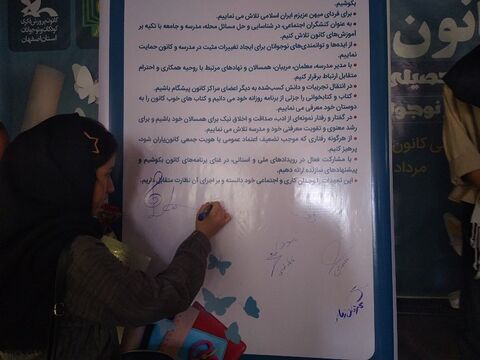 بکوشیم.
برای فردای میهن عزیزم ایران اسلامی تلاش می نماییم.
به عنوان کنشگران اجتماعی، در شناسایی و حل مسائل محله، مدرسه و جامعه با تکیه بر
آموزش‌های کانون تلاش کنیم.
از ایده‌ها و توانمندی‌های نوجوانان برای ایجاد تغییرات مثبت در مدرسه و کانون حمایت
نماییم.
با مدیر مدرسه، معلمان، مربیان، همسالان و نهادهای مرتبط با روحیه همکاری و احترام
متقابل ارتباط برقرار کنیم.
در انتقال تجربیات و دانش کسب‌شده به دیگر اعضای مراکز کانون پیشگام باشیم.
کتاب و کتابخوانی را جزئی از برنامه روزانه خود می دانیم و کتاب های خوب کانون را به
دوستان خود معرفی می نماییم.
در گفتار و رفتار نمونه‌ای از ادب، صداقت و اخلاق نیک برای همسالان خود باشیم و برای
رشد معنوی و تقویت معرفتی خود و مدرسه تلاش می نماییم.
از هرگونه رفتاری که موجب تضعیف اعتماد عمومی یا هویت جمعی کانون‌یاران شود،
پرهیز کنیم.
با مشارکت فعال در رویدادهای ملی و استانی، در غنای برنامه‌های کانون بکوشیم و
پیشنهادهای سازنده ارائه دهیم.
این تعهدات را وجدان کاری و اجتماعی خود دانسته و بر اجرای آن نظارت متقابل داریم.
کانون پرورش فکری
کودکان و نوجوانان
استان اصفهان
نون
حصیلی
نوجو
کانون
مرداد